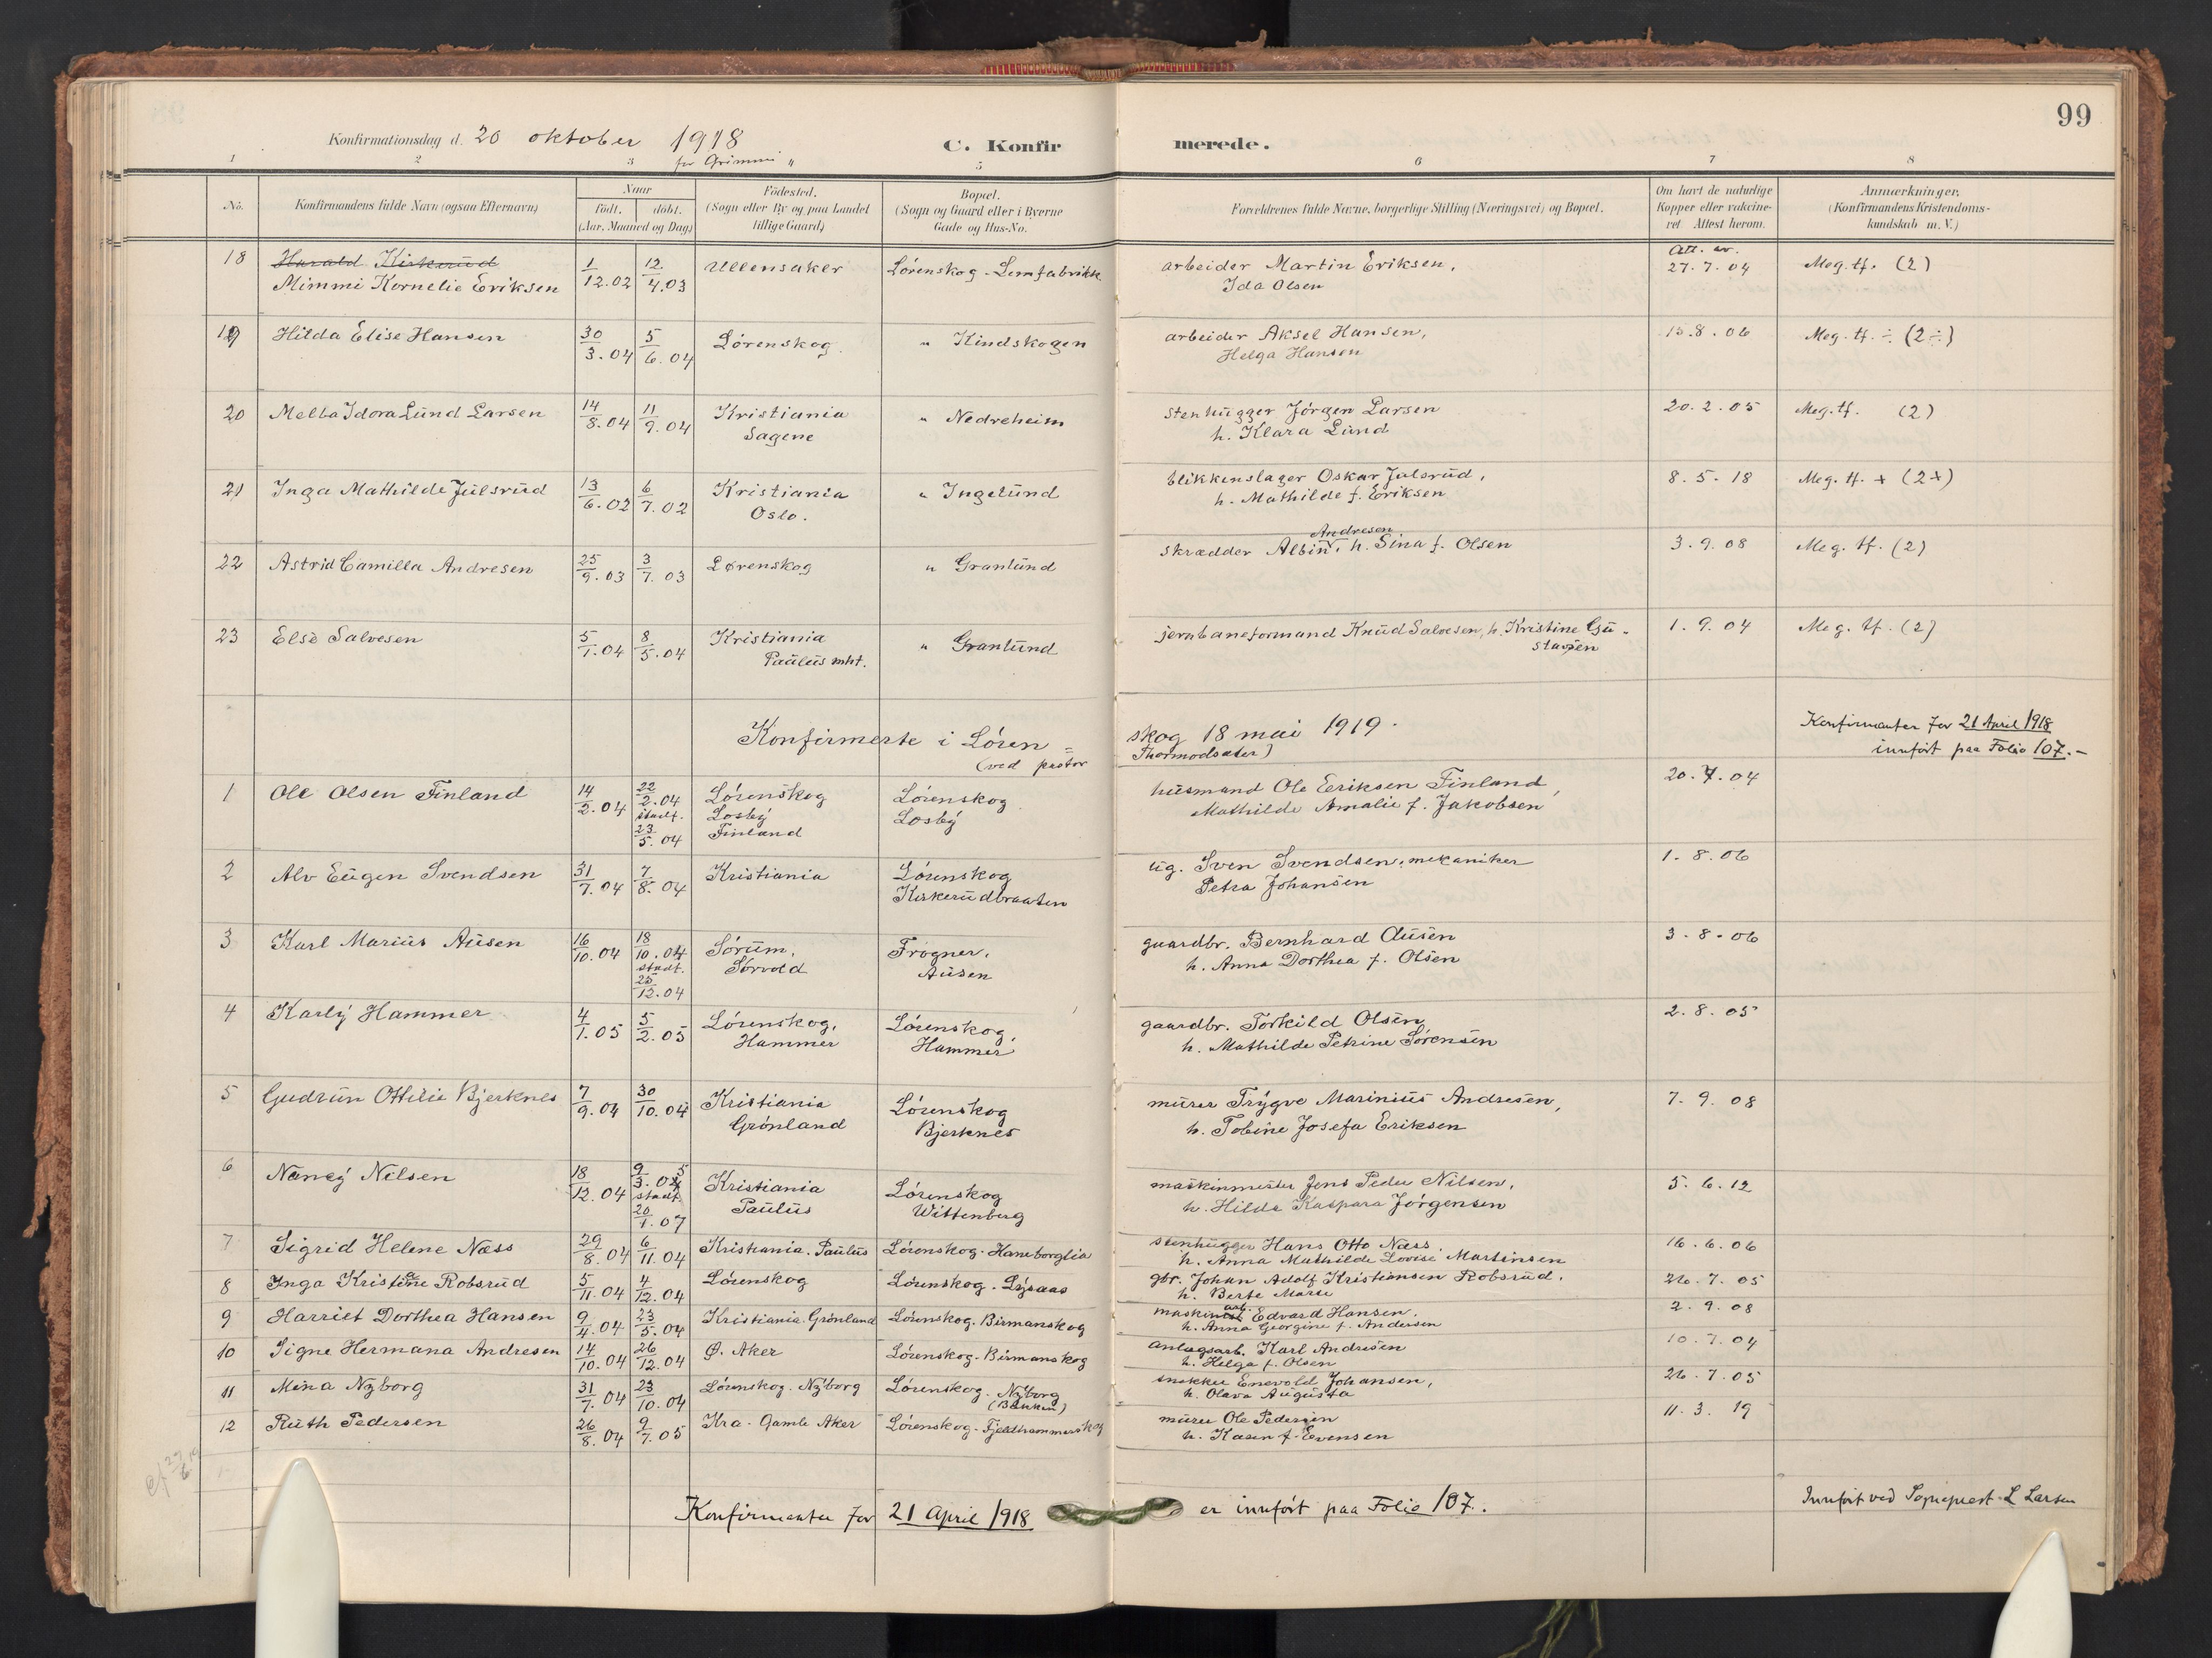 99
Konfirmationsdag d. 20 oktober 1918 C. Konfir merede.
1 2 3 5 6 7 8
No. Konfirmandens fulde Navn (ogsaa Efternavn) Naar født. døbt. (Aar, Maaned og Dag) Födested. (Sogn eller By og paa Landet tillige Gaard) Bopæl. (Sogn og Gaard eller i Byerne Gade og Hus-No. Forældrenes fulde Navne, borgerlige Stilling (Næringsvei) og Bopæl. Om havt de naturlige Kopper eller vakcineret Attest herom. Anmærkninger. (Konfirmandens Kristendomskundskab m.V.)
18 Harald Kirkerud
Mimmi Kornelie Eriksen 1/12.02 12/4.03 Ullensaker Lørenskog - Limfabrikk arbeider Martin Eriksen, Att. av. 27.7.04 Meg. tf. (2)
Ida Olsen
19 Hilda Elise Hansen 30/3.04 5/6.04 Lørenskog " Kindskogen arbeider Aksel Hansen, 15.8.06 Meg. tf. ÷ (2÷)
Helga Hansen
20 Melba Idora Lund Larsen 14/8.04 11/9.04 Kristiania " Nedreheim stenhugger Jørgen Larsen 20.2.05 Meg. tf. (2)
Sagene h. Klara Lund
21 Inga Mathilde Julsrud 13/6.02 6/7.02 Kristiania " Ingelund blikkenslager Oskar Julsrud, 8.5.18 Meg. tf. + (2+)
Oslo. h. Mathilde f. Eriksen
Andresen
22 Astrid Camilla Andresen 25/9.03 3/7.03 Lørenskog " Granlund skrædder Albin, h. Sina f. Olsen 3.9.08 Meg. tf. (2)
23 Else Salvesen 5/1.04 8/5.04 Kristiania " Granlund jernbaneformand Knud Salvesen, h. Kristine Gu- 1.9.04 Meg. tf. (2)
Paulus mht. stavsen
Konfirmerte i Løren= skog 18 mai 1919. Konfirmanter for 21 April 1918
(ved pastor Thormodsæter) innført paa Folio 107.-
1 Ole Olsen Finland 14/2.04 22/2.04 Lørenskog Lørenskog husmand Ole Eriksen Finland, 20.7.04
stadf. Losby Losby Mathilde Amalie f. Jakobsen
23/5.04 Finland
2 Alv Eugen Svendsen 31/7.04 7/8.04 Kristiania Lørenskog ug. Sven Svendsen, mekaniker 1.8.06
Kirkerudbraaten Petra Johansen
3 Karl Marius Ausen 16/10.04 18/10.04 Sørum, Frogner, gaardbr. Bernhard Ausen 3.8.06
stadf. Sørvold Ausen h. Anna Dorthea f. Olsen
25/12.04
4 Karly Hammer 4/1.05 5/2.05 Lørenskog, Lørenskog, gaardbr. Torkild Olsen 2.8.05
Hammer Hammer h. Mathilde Petrine Sørensen
5 Gudrun Ottilie Bjerknes 7/9.04 30/10.04 Kristiania Lørenskog murer Trygve Marinius Andresen, 7.9.08
Grønland Bjerknes h. Tobine Josefa Eriksen
6 Nancy Nilsen 18/12.04 9/3.05 Kristiania Lørenskog maskinmester Jens Peder Nilsen, 5.6.12
stadf. Paulus Wittenberg h. Hilda Kaspara Jørgensen
20/1.07
7 Sigrid Helene Næss 29/8.04 6/11.04 Kristiania. Paulus Lørenskog. Haneborglia stenhugger Hans Otto Næss 16.6.06
h. Anna Mathilde Lovise Martinsen
8 Inga Kristine Robsrud 5/11.04 4/12.04 Lørenskog Lørenskog. Lysaas gbr. Johan Adolf Kristiansen Robsrud. 26.7.05
h. Berte Marie
9 Harriet Dorthea Hansen 9/4.04 23/5.04 Kristiania. Grønland Lørenskog. Birmanskog maskinarb. Edvard Hansen. 2.9.08
h. Anna Georgine f. Andersen
10 Signe Hermana Andresen 14/10.04 26/12.04 Ø. Aker Lørenskog. Birmanskog anlægsarb. Karl Andresen 10.7.04
h. Helga f. Olsen
11 Mina Nyborg 31/7.04 23/10.04 Lørenskog. Nyborg Lørenskog. Nyborg snekker Enevold Johansen, 26.7.05
(Bakken) h. Olava Augusta
12 Ruth Pedersen 26/8.04 9/7.05 Kra. Gamle Aker Lørenskog. Fjeldhammerskog murer Ole Pedersen 11.3.19
h. Karen f. Evensen
Konfirmanter for 21 April 1918 er innført paa Folio 107. Innført ved Sogneprest L Larsen